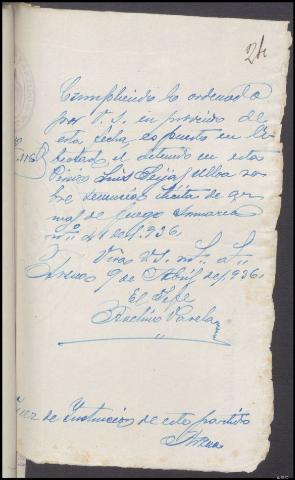 24
Cumpliendo lo ordenado
por V. S. en proveido de
esta fecha, es puesto en li-
bertad el detenido en esta
Luis Ulloa so-
bre tenencia ilicita de ar-
mas de fuego Sumario
nº 11 de 1.936.
Viva V. S. m. a.
9 de Abril de 1.936.
El Jefe
Varela
Juez de Instrucion de este partido